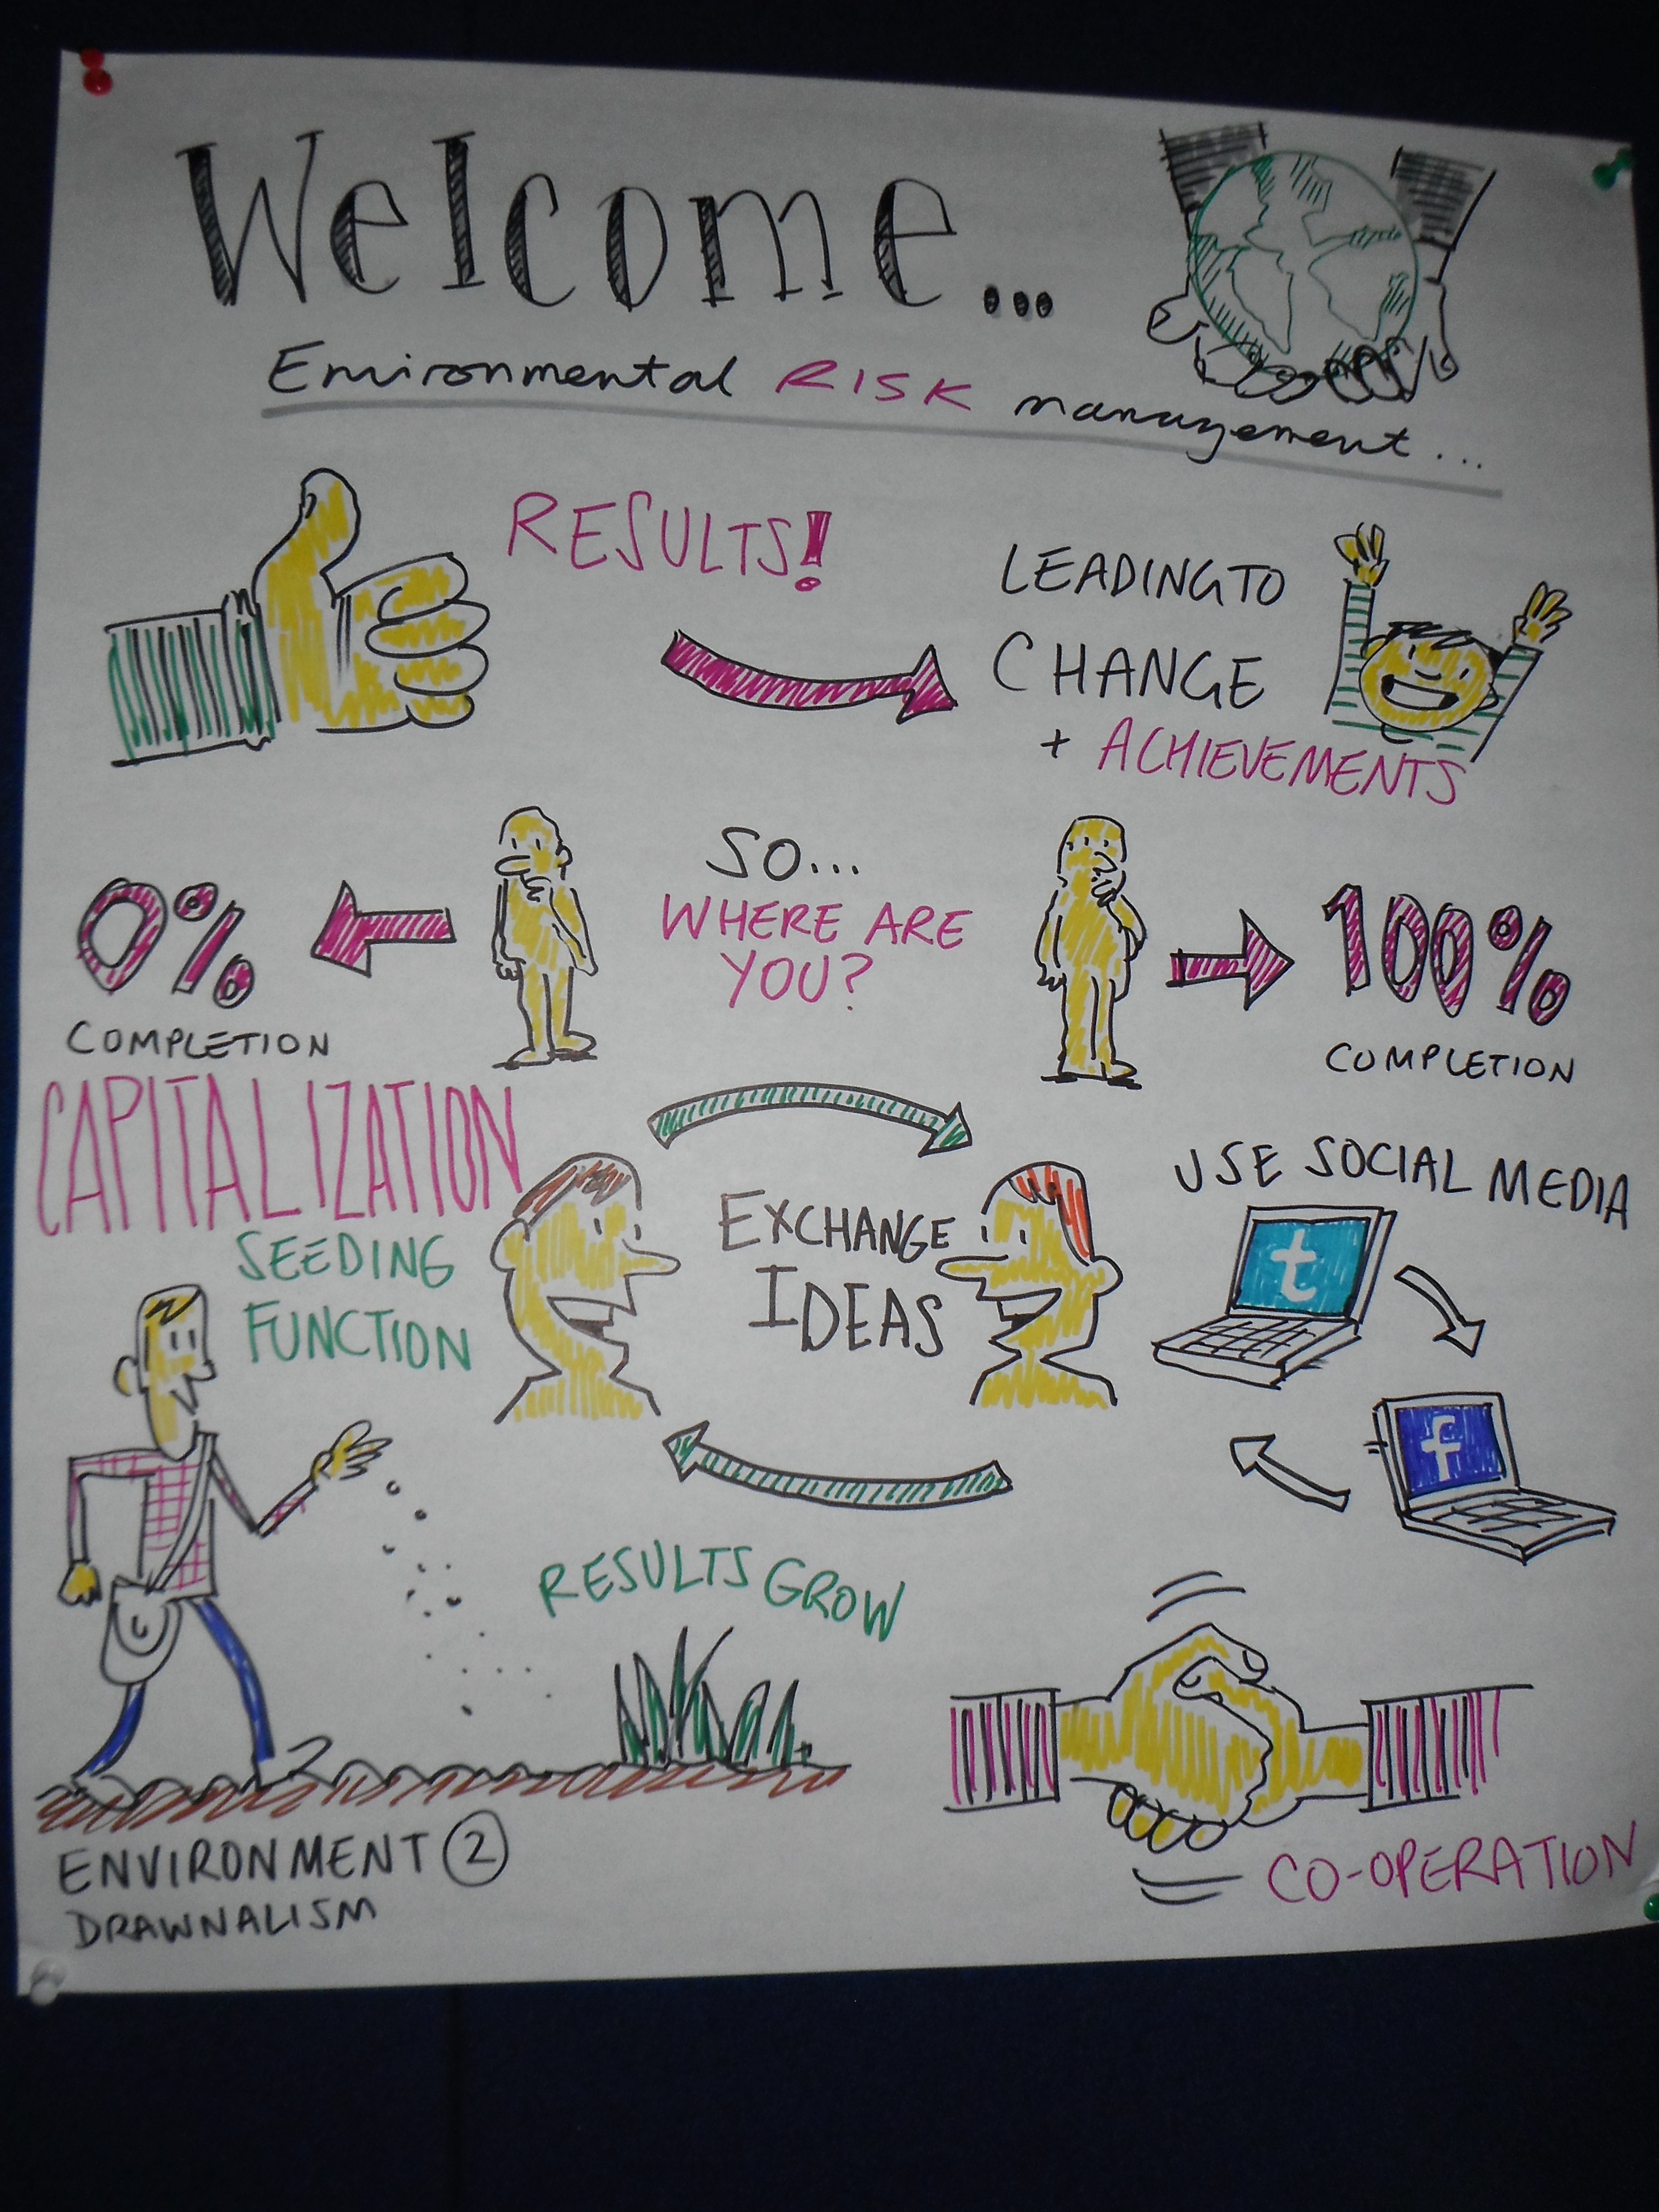 Welcome...
Environmental RISK management...
RESULTS!
LEADING TO
CHANGE
+ ACHIEVEMENTS
SO...
WHERE ARE
YOU?
0%
COMPLETION
100%
COMPLETION
CAPITALIZATION
SEEDING
FUNCTION
EXCHANGE
IDEAS
USE SOCIAL MEDIA
t
f
RESULTS GROW
CO-OPERATION
ENVIRONMENT 2
DRAWNALISM